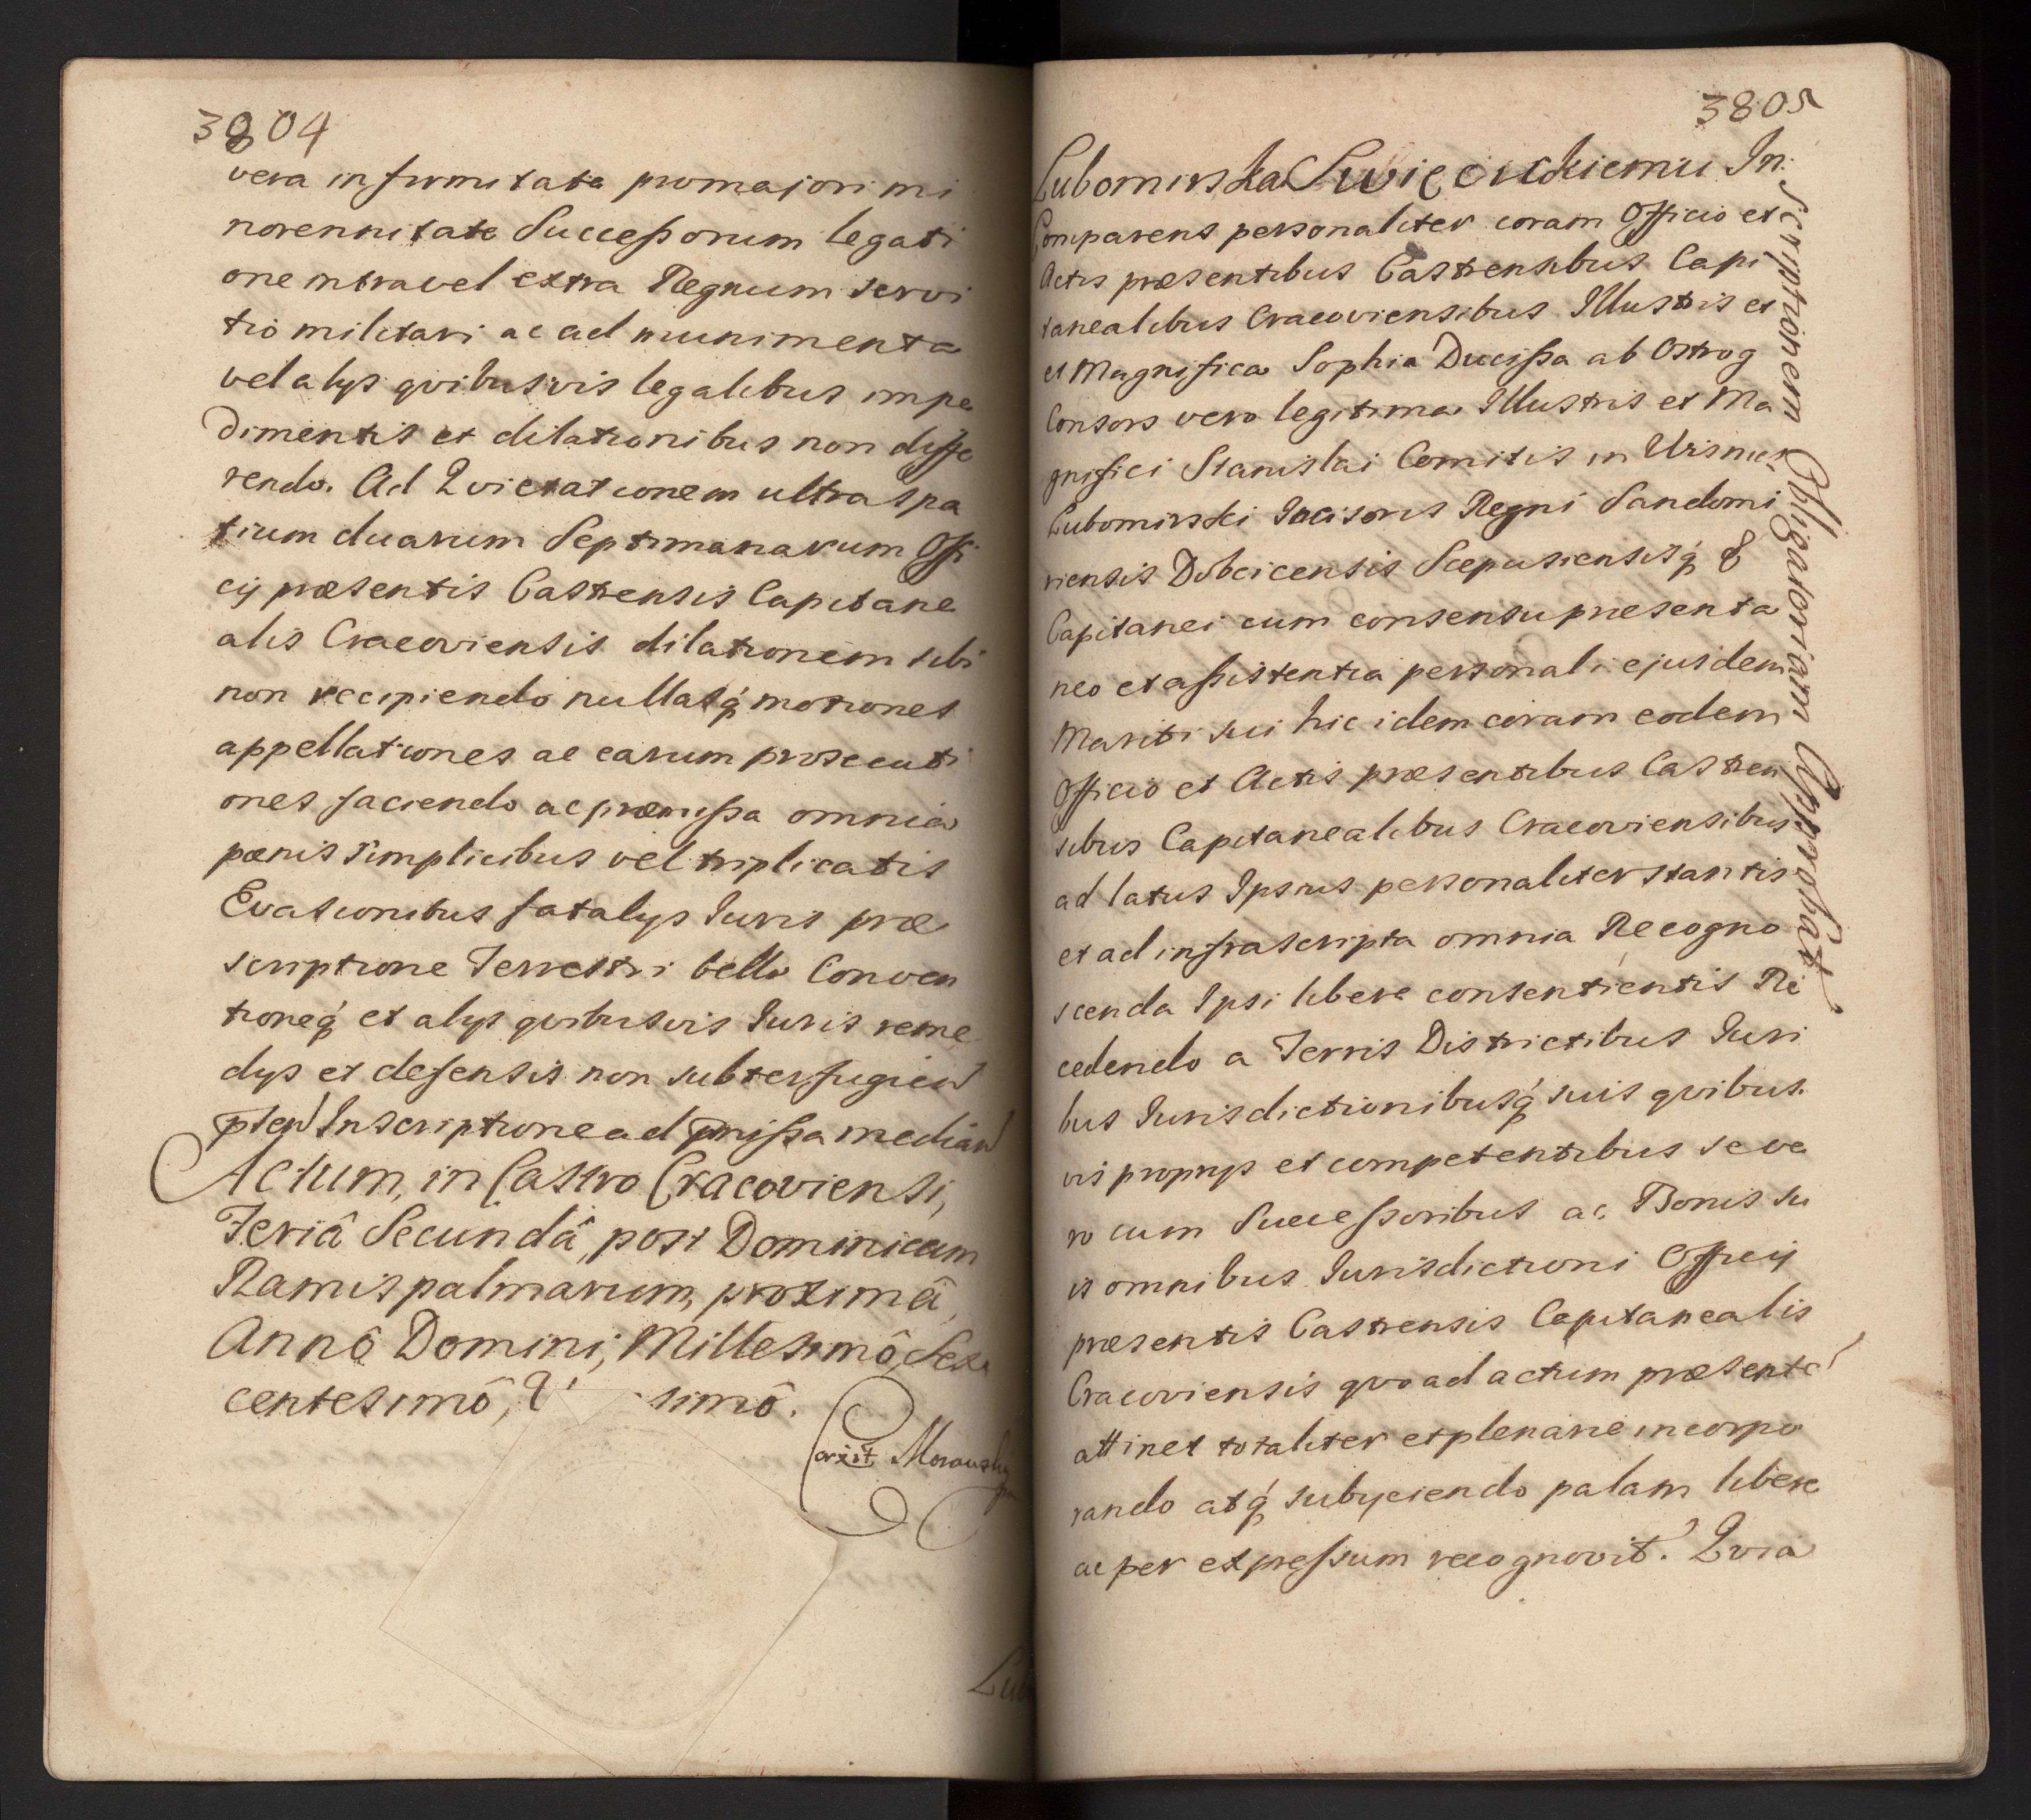 3804
vera infirmitate promajori mi
norennitate Successorum legati
one intra vel extra Regnum servi
tio militari ac ad munimenta
vel alys qvibusvis legalibus impe
dimentis et dilationibus non diffe
rendo. Ad Qvietationem ultra spa
tium duarum Septimanarum Offi
cij præsentis Castrensis Capitane
alis Cracoviensis dilationem sibi
non recipiendo nullasq́ motiones
appellationes ac earum prosecuti
ones faciendo ac præmissa omnia
pœnis simplicibus vel triplicatis
Evasionibus fatalys Iuris præ
scriptione Terrestri bello Conven
tioneq́ et alys qvibusvis Iuris reme
dys et defensis non subterfugien
Inscriptione ad pmissa median
Actum, in Castro Cracoviensi,
Feriâ Secundâ, post Dominicam
Ramispalmarum, proximâ,
Annô Domini, Millesimô, Sex
centesimô, simô.
Corixit Morawsky
Lub
3805
Lubomirska Swięcickiemu In:
scriptionem Obligatoriam Approbat
Comparens personaliter coram Officio et
Actis præsentibus Castrensibus Capi
tanealibus Cracoviensibus Illustris et
et Magnifica Sophia Ducissa ab Ostrog
Consors vero legitima Illustris et Ma
gnifici Stanislai Comitis in Wisnicz
Lubomirski Incisoris Regni Sandomi
riensis Dobcicensis Scepusiensisq́ &
Capitanei cum consensu præsenta
neo et assistentia personali ejusdem
Mariti sui hic idem coram eodem
Officio et Actis præsentibus Castren
sibus Capitanealibus Cracoviensibus
ad latus Ipsius personaliter stantis
et ad infrascripta omnia Recogno
scenda Ipsi libere consentientis Re
cedendo a Terris Districtibus Iuri
bus Iurisdictionibusq́ suis qvibus.
vis proprys et competentibus se ve
ro cum Successoribus ac Bonis su
is omnibus Iurisdictioni Officij
præsentis Castrensis Capitanealis
Cracoviensis qvo ad actum præsente
attinet totaliter et plenarie incorpo
rando atq́ subyciendo palam libere
ac per expressum recognovit. Qvia